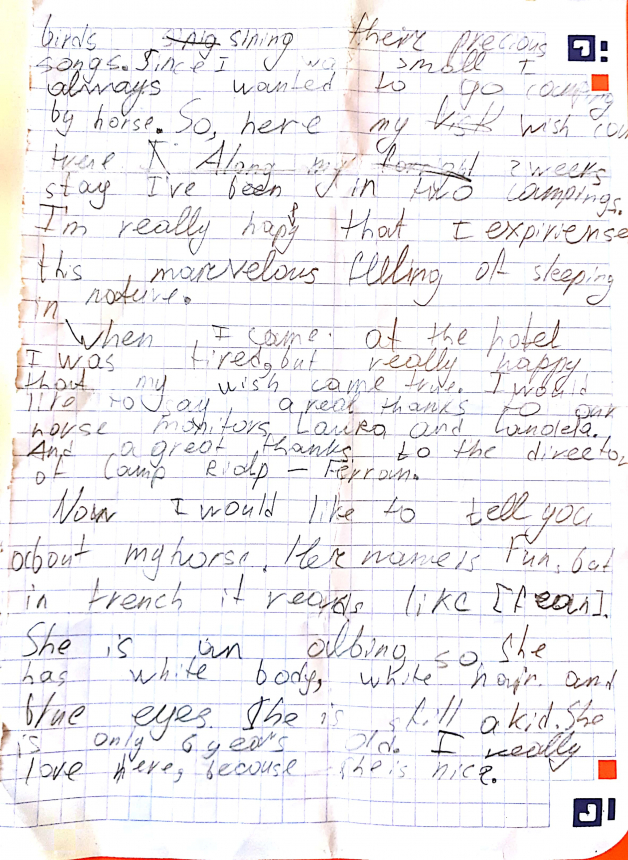 birds sining their precious
songs. Since I was small I
always wanted to go camping
by horse. So, here my wish com
true Along my 2 weeks
stay I've been in two campings.
I'm really happy that I expirense
this marvelous filling of sleeping
in nature.
When I came at the hotel
I was tired, but really happy
that my wish came true. I would
like to say a real thanks to our
horse monitors Laura and Candela.
And a great thanks to the director
of Camp Rialp – Ferran.
Now I would like to tell you
about my horse. Her name is Fun, but
in french it reads like [fean].
She is an albino, so she
has white body, white hair and
blue eyes. She is still a kid. She
is only 6 years old. I really
love here, because she is nice.